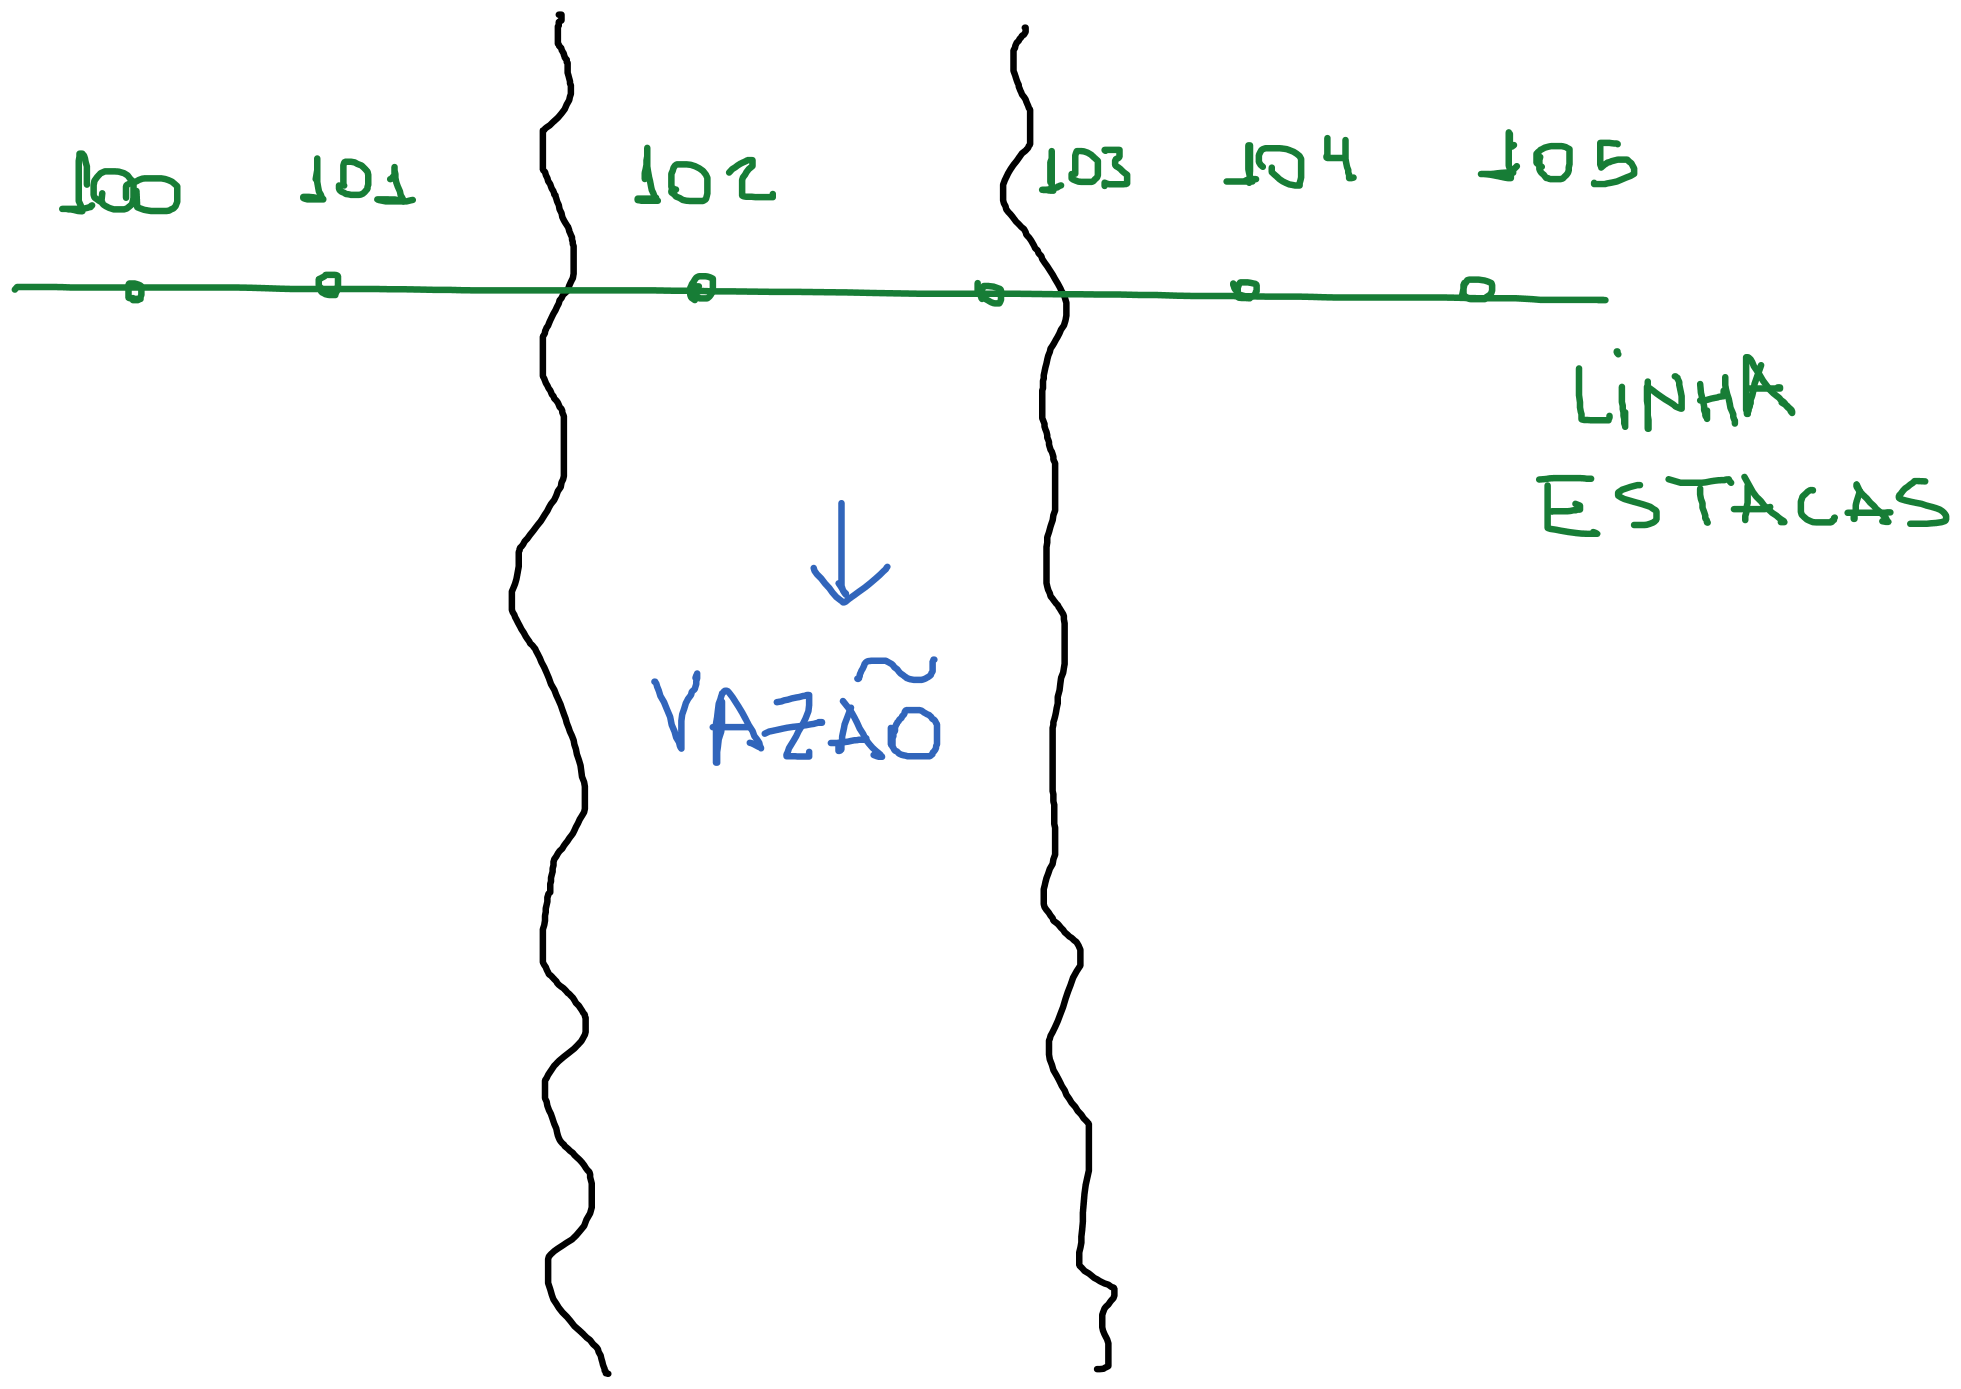 100 101 102 103 104 105
LiNHA
ESTACAS
VAZÃO